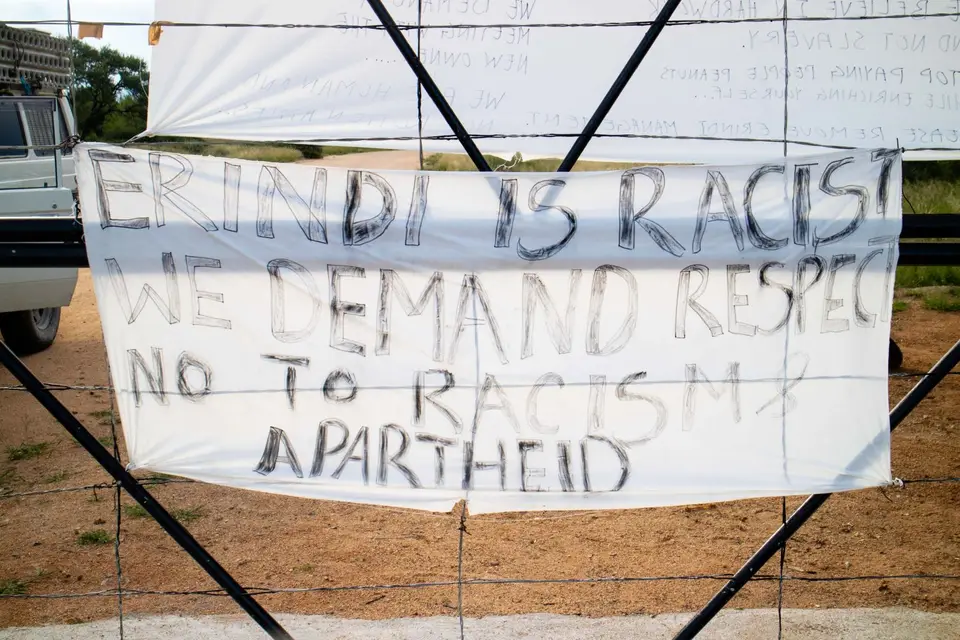 BELIEVE IN HARDWORK
AND NOT SLAVERY.
STOP PAYING PEOPLE PEANUTS
WHILE ENRICHING YOURSELF...
PLEASE, REMOVE ERINDI MANAGEMENT.
WE DEMAND
MEETING THE
NEW
HUMAN
WE
ERINDI IS RACIST
WE DEMAND RESPECT
NO TO RACISM &
APARTHEID